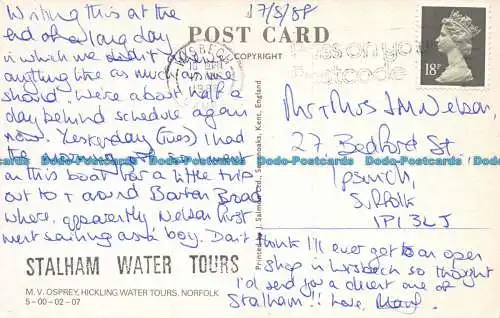 Writing this at the
end of a long day
in which we didn't
anything like as much as we
should. We're about half a
day behind schedule again
now. Yesterday (Tues) I had
the morning off so went
on this boat for a little trip
out to & around Barton Broad
where, apparently Nelson first
went sailing as a boy. Don't
think I'll ever get to an open
shop in Wisbech so thought
I'd send you a decent one of
Stalham!! Love,
17/5/88
POST CARD
COPYRIGHT
WISBECH
Pass on your
Postcode
18P
Mr & Mrs J M Nelson,
27, Bedford St.,
Ipswich,
Suffolk
IP1 3LJ
Printed by J. Salmon Ltd., Sevenoaks, Kent, England
STALHAM WATER TOURS
M.V. OSPREY, HICKLING WATER TOURS, NORFOLK
5-00-02-07
Dodo-Postcards Dodo-Postcards Dodo-Postcards Dodo-Postcards Dodo-Postcards